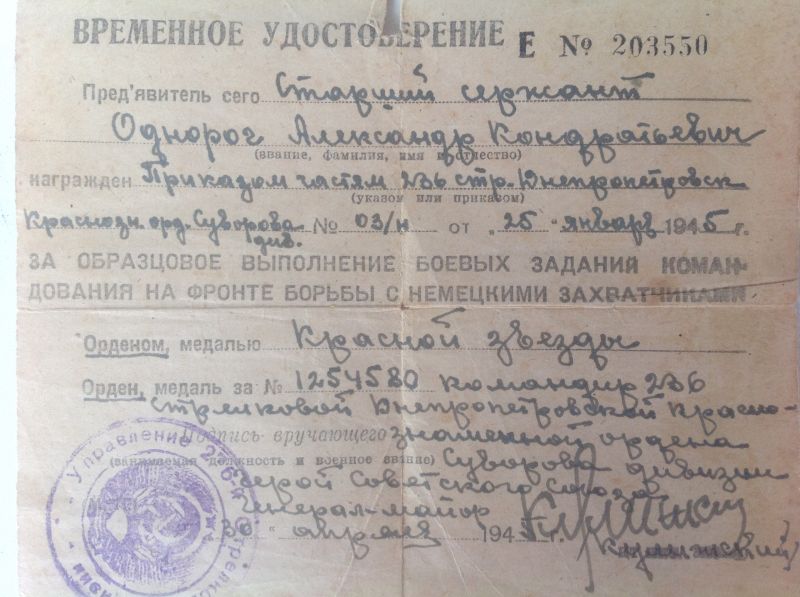 ВРЕМЕННОЕ УДОСТОВЕРЕНИЕ Е № 203550
Пред'явитель сего Старший сержант
Однорог Александр Кондратьевич
(звание, фамилия, имя и отчество)
награжден Приказом частям 236 стр. Днепропетровск
(указом или приказом)
Краснозн. орд. Суворова див. № 03/н от „25" января 1945 г.
ЗА ОБРАЗЦОВОЕ ВЫПОЛНЕНИЕ БОЕВЫХ ЗАДАНИЙ КОМАН-
ДОВАНИЯ НА ФРОНТЕ БОРЬБЫ С НЕМЕЦКИМИ ЗАХВАТЧИКАМИ
Орденом, медалью Красной звезды
Орден, медаль за № 1254580 командир 236
стрелковой Днепропетровской красно-
Подпись вручающего знаменной ордена
(занимаемая должность и военное звание) Суворова дивизии
Герой Советского Союза
Генерал-майор
30 " апреля 1945 г.
Управление 236-й